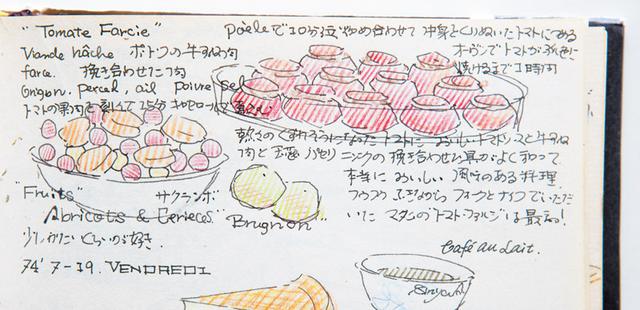 "Tomate Farcie"
Viande hâche ポトフの牛ひき肉
farce. 挽き合わせた肉
Oignon, persed, ail poivre sel
トマトの果肉を刻んで25分
poêleで10分位いためあわせて 中身をくりぬいたトマトにつめる
オーブンでトマトが
焼けるまで1時間
熱さのくずれそうになったトマトに おいしいトマトソースと牛ひき
肉と玉葱 パセリ ニンニクの挽き合わせた具がよくあって
本当に おいしい 風味のある料理.
フウフウ ふきながら フォークとナイフでいただ
いた マダンのトマト・ファルシは最高!
"Fruits" サクランボ
Abricots & Cerieces"
少しかたいくらいのが好き.
Brugnon"
74' 7-19. VENDREDI
Café au Lait.